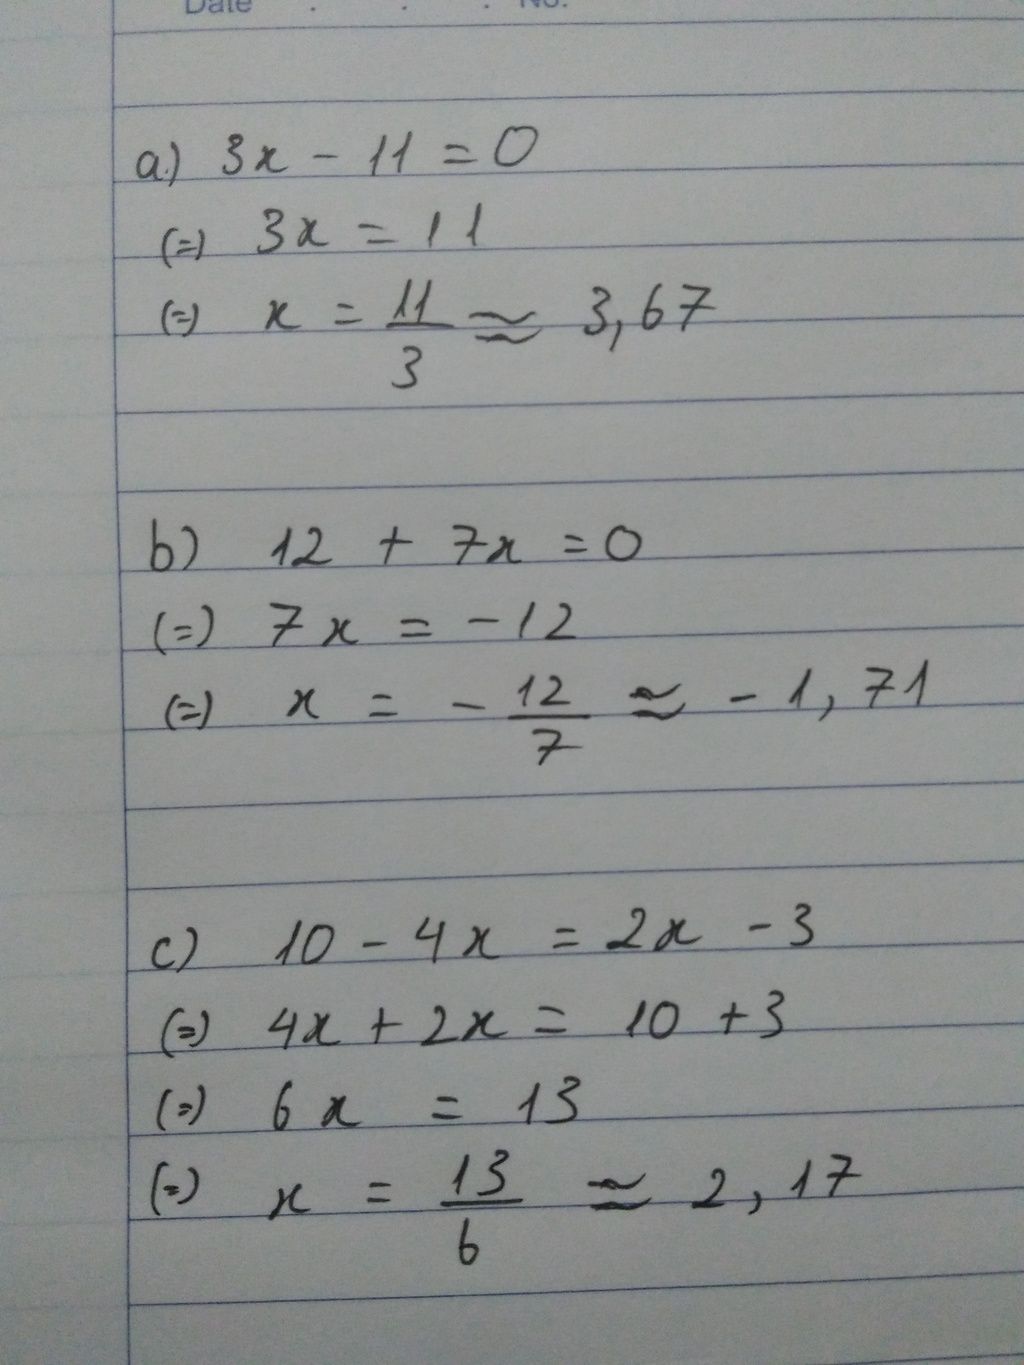 Date . . . No.
a) 3x - 11 = 0
(=) 3x = 11
(=) x = 11/3 ≈ 3,67
b) 12 + 7x = 0
(=) 7x = -12
(=) x = - 12/7 ≈ - 1,71
c) 10 - 4x = 2x - 3
(=) 4x + 2x = 10 + 3
(=) 6x = 13
(=) x = 13/6 ≈ 2,17